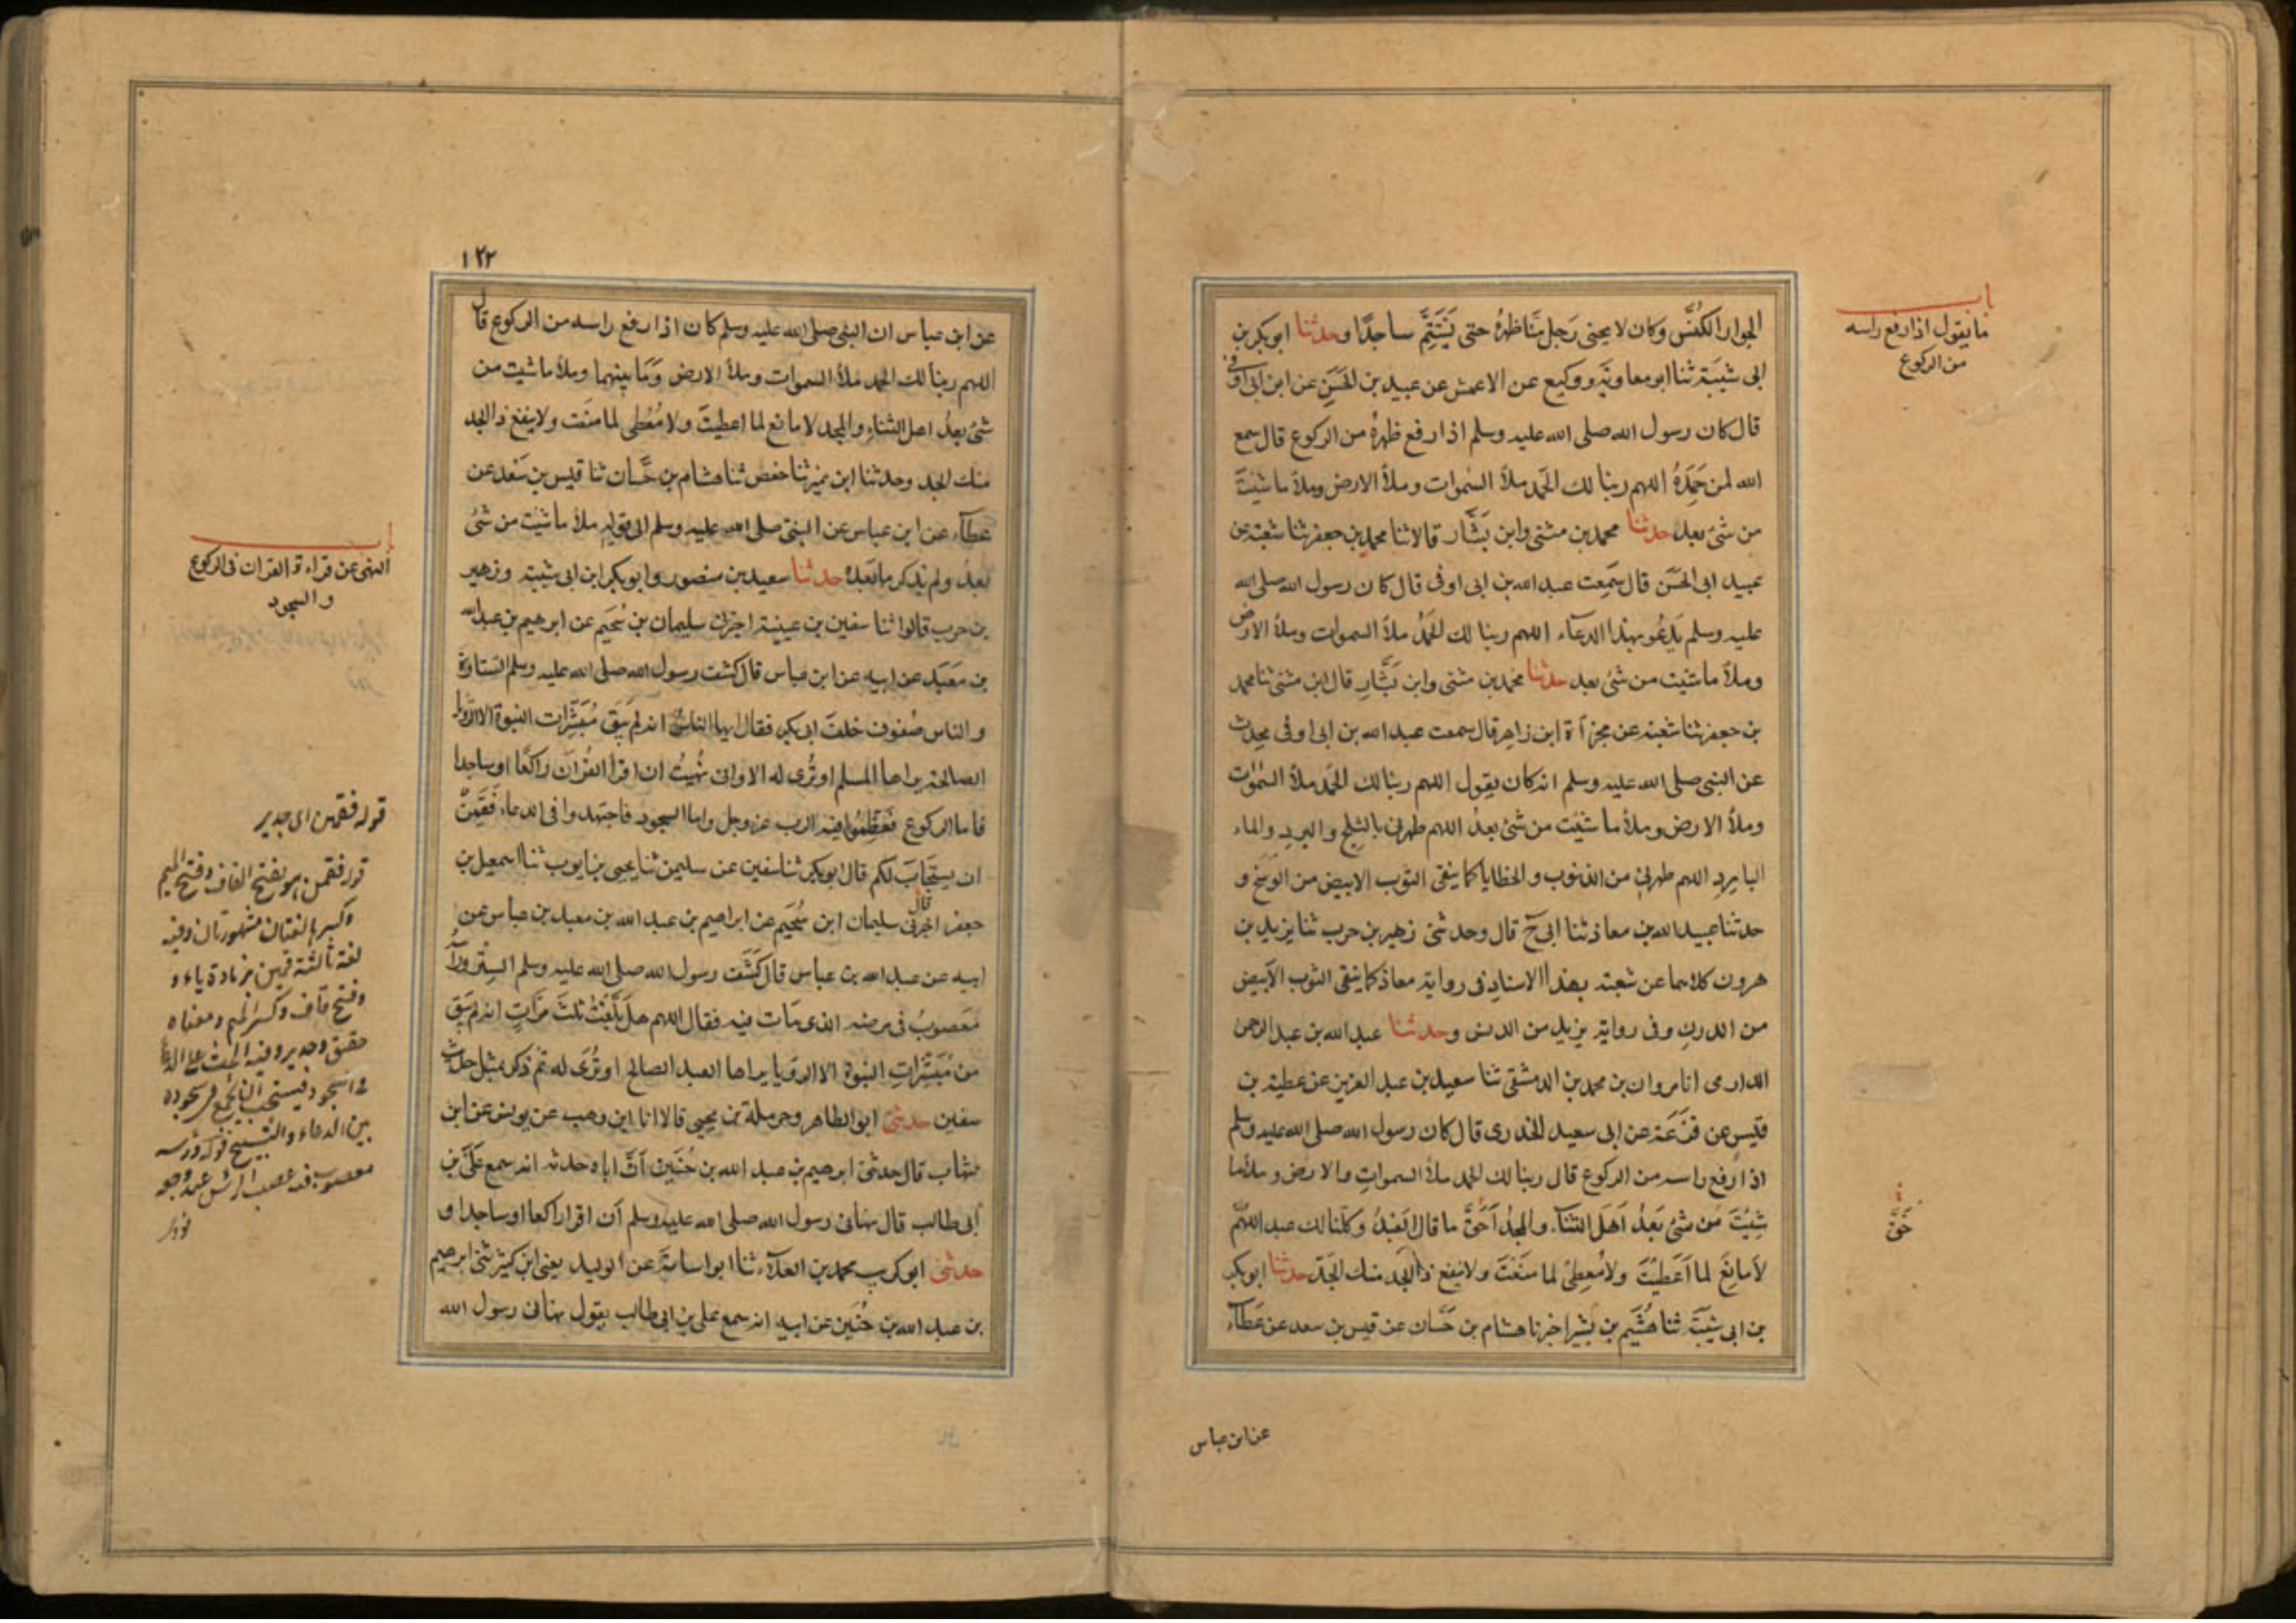 باب
ما يقول اذا رفع راسه
من الركوع
الجوار الكنس وكان لا يحنى رجل منا ظهره حتى يستتم ساجدا وحدثنا ابو بكر بن
ابى شيبة ثنا ابو معاوية ووكيع عن الاعمش عن عبيد بن الحسن عن ابن ابى اوفى
قال كان رسول الله صلى الله عليه وسلم اذا رفع ظهره من الركوع قال سمع
الله لمن حمده اللهم ربنا لك الحمد ملأ السموات وملأ الارض وملأ ما شئت
من شئ بعد حدثنا محمد بن مثنى وابن بشار قالا ثنا محمد بن جعفر ثنا شعبة عن
عبيد ابى الحسن قال سمعت عبد الله بن ابى اوفى قال كان رسول الله صلى الله
عليه وسلم يدعو بهذا الدعاء اللهم ربنا لك الحمد ملأ السموات وملأ الارض
وملأ ما شئت من شئ بعد حدثنا محمد بن مثنى وابن بشار قال ابن مثنى ثنا محمد
بن جعفر ثنا شعبة عن مجزأة ابن زاهر قال سمعت عبد الله بن ابى اوفى يحدث
عن النبى صلى الله عليه وسلم انه كان يقول اللهم ربنا لك الحمد ملأ السموات
وملأ الارض وملأ ما شئت من شئ بعد اللهم طهرنى بالثلج والبرد والماء
البارد اللهم طهرنى من الذنوب والخطايا كما ينقى الثوب الابيض من الوسخ و
حدثنا عبيد الله بن معاذ ثنا ابى ح قال وحدثنى زهير بن حرب ثنا يزيد بن
هرون كلاهما عن شعبة بهذا الاسناد فى رواية معاذ كما ينقى الثوب الابيض
من الدرن وفى رواية يزيد من الدنس وحدثنا عبد الله بن عبد الرحمن
الدارمى انا مروان بن محمد بن الدمشقى ثنا سعيد بن عبد العزيز عن عطية بن
قيس عن قزعة عن ابى سعيد الخدرى قال كان رسول الله صلى الله عليه وسلم
اذا رفع راسه من الركوع قال ربنا لك الحمد ملأ السموات والارض وملأ ما
شئت من شئ بعد اهل الثناء والمجد احق ما قال العبد وكلنا لك عبد اللهم
لا مانع لما اعطيت ولا معطى لما منعت ولا ينفع ذا الجد منك الجد حدثنا ابو بكر
بن ابى شيبة ثنا هشيم بن بشير اخبرنا هشام بن حسان عن قيس بن سعد عن عطاء
حق
عن ابن عباس
١٢٢
عن ابن عباس ان النبى صلى الله عليه وسلم كان اذا رفع راسه من الركوع قال
اللهم ربنا لك الحمد ملأ السموات وملأ الارض وما بينهما وملأ ما شئت من
شئ بعد اهل الثناء والمجد لا مانع لما اعطيت ولا معطى لما منعت ولا ينفع ذا الجد
منك الجد وحدثنا ابن نمير ثنا حفص ثنا هشام بن حسان ثنا قيس بن سعد عن
عطاء عن ابن عباس عن النبى صلى الله عليه وسلم الى قوله ملأ ما شئت من شئ
بعد ولم يذكر ما بعده حدثنا سعيد بن منصور وابو بكر ابن ابى شيبة وزهير
بن حرب قالوا ثنا سفين بن عيينة اخبرنى سليمان بن سحيم عن ابرهيم بن عبد الله
بن معبد عن ابيه عن ابن عباس قال كشف رسول الله صلى الله عليه وسلم الستارة
والناس صفوف خلف ابى بكر فقال ايها الناس انه لم يبق مبشرات النبوة الا الرؤيا
الصالحة يراها المسلم او ترى له الا وانى نهيت ان اقرا القران راكعا او ساجدا
فاما الركوع فعظموا فيه الرب عز وجل واما السجود فاجتهدوا فى الدعاء فقمن
ان يستجاب لكم قال ابو بكر ثنا سفين عن سليمن ثنا يحيى بن ايوب ثنا اسمعيل بن
جعفر قال اخبرنى سليمان ابن سحيم عن ابراهيم بن عبد الله بن معبد بن عباس عن
ابيه عن عبد الله بن عباس قال كشف رسول الله صلى الله عليه وسلم الستر ورأ
معصوب فى مرضه الذى مات فيه فقال اللهم هل بلغت ثلث مرات انه لم يبق
من مبشرات النبوة الا الرؤيا يراها العبد الصالح او ترى له ثم ذكر بمثل حديث
سفين حدثنى ابو الطاهر وحرملة بن يحيى قالا انا ابن وهب عن يونس عن ابن
شهاب قال حدثنى ابرهيم بن عبد الله بن حنين ان اباه حدثه انه سمع على بن
ابى طالب قال نهانى رسول الله صلى الله عليه وسلم ان اقرا راكعا او ساجدا و
حدثنى ابو كريب محمد بن العلاء ثنا ابو اسامة عن الوليد يعنى ابن كثير ثنى ابرهيم
بن عبد الله بن حنين عن ابيه انه سمع على بن ابى طالب يقول نهانى رسول الله
باب
النهى عن قراءة القران فى الركوع
والسجود
قوله فقمن اى جدير
قوله فقمن هو بفتح القاف وفتح الميم
وكسرها لغتان مشهورتان وفيه
لغة ثالثة قمين بزيادة ياء و
وفتح قاف وكسر الميم ومعناه
حقيق وجدير وفيه الحث على الدعاء
فى السجود فيستحب ان يجمع فى سجوده
بين الدعاء والتسبيح قوله ورسه
معصوب فيه عصب الراس عند وجعه